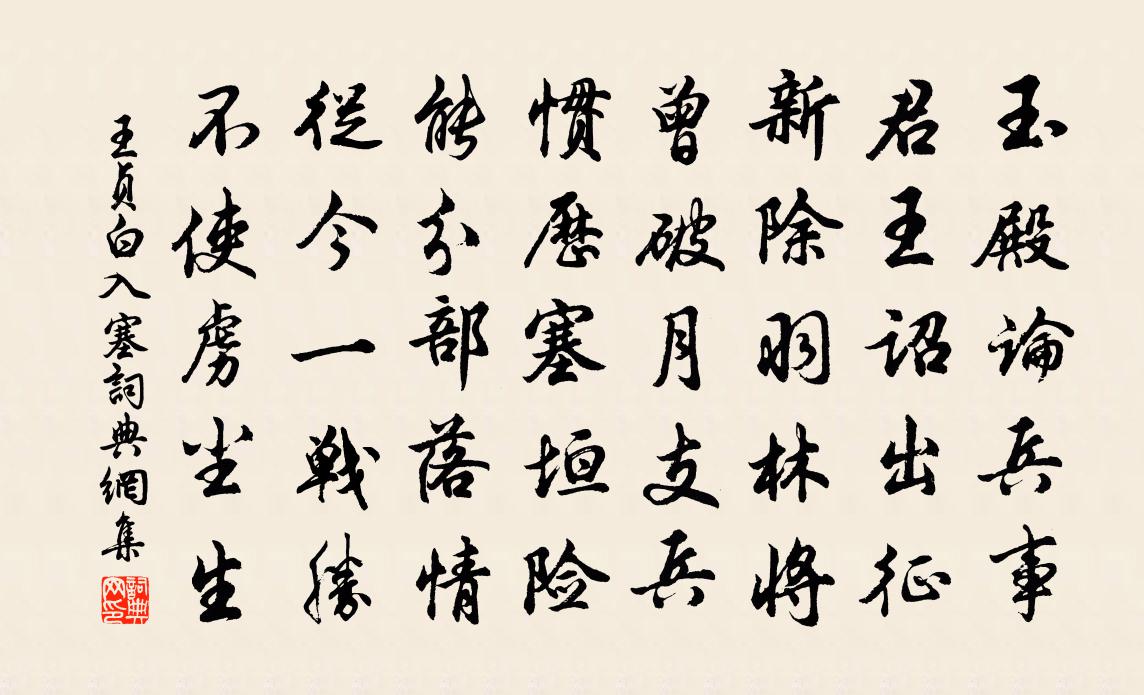 玉殿論兵事
君王詔出征
新除羽林將
曾破月支兵
慣歷塞垣險
能分部落情
從今一戰勝
不使虜尘生
王貞白入塞詞典網集
詞典
网印